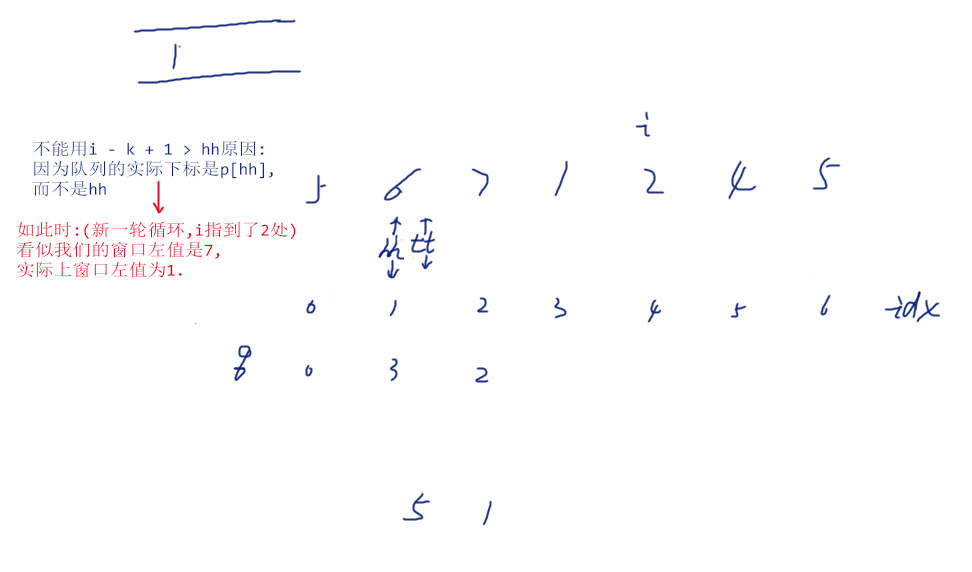 1
i
不能用i - k + 1 > hh原因:
因为队列的实际下标是p[hh],
而不是hh
5 6 7 1 2 4 5
如此时:(新一轮循环,i指到了2处)
看似我们的窗口左值是7,
实际上窗口左值为1.
hh tt
0 1 2 3 4 5 6 idx
q 0 3 2
5 1